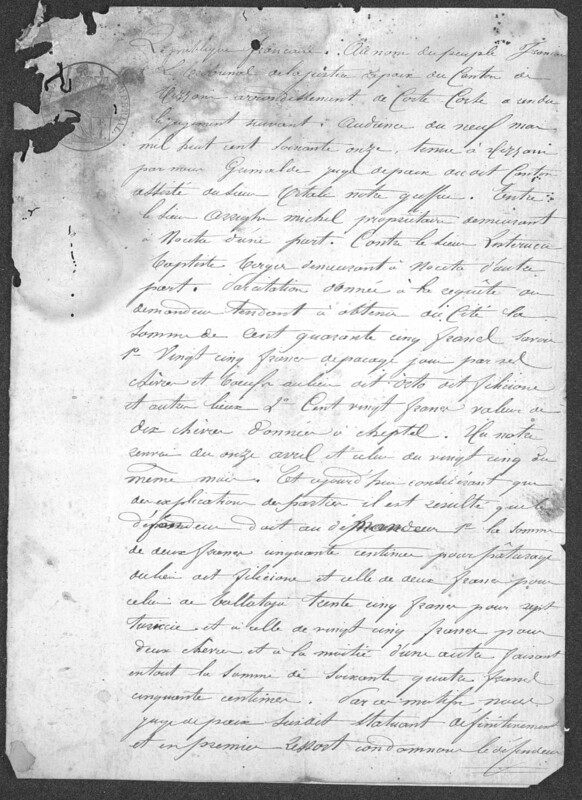 République française. Au nom du peuple français
Le tribunal de la justice de paix du Canton de
Vezzani arrondissement de Corte Corse a rendu
le jugement suivant. Audience du neuf mai
mil huit cent soixante onze, tenue à Vezzani
par nous Grimaldi juge de paix au dit Canton
assisté du sieur Vitale notre greffier. Entre
le sieur Arrighi michel propriétaire demeurant
à Noceta d'une part. Contre le sieur
Baptiste Berger demeurant à Noceta d'autre
part. Par citation donnée à la requête du
demandeur tendant à obtenir du Cité la
somme de cent quarante cinq francs savoir
1° Vingt cinq francs de pacage joui par ses
chèvres et bœufs au lieu dit Orto dit filicione
et autres lieux 2° Cent vingt francs valeur de
dix chèvres données à cheptel. Vu notre
renvoi du onze avril et celui du vingt cinq du
même mois. Et aujourd'hui considérant que
des explications des parties il est résulté que le
défendeur doit au demandeur 1° la somme
de deux francs cinquante centimes pour pâturage
du lieu dit filicione et celle de deux francs pour
celui de trente cinq francs pour sept
et à celle de vingt cinq francs pour
deux chèvres et à la moitié d'une autre faisant
en tout la somme de soixante quatre francs
cinquante centimes. Par ces motifs nous
juge de paix susdit statuant définitivement
et en premier ressort condamnons le défendeur